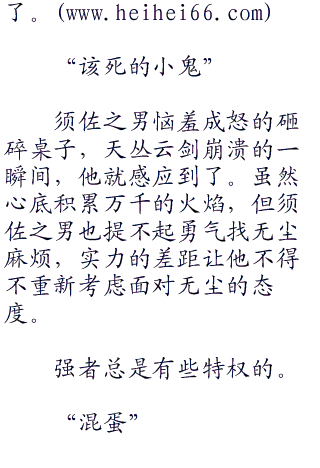 了。(www.heihei66.com)
“该死的小鬼”
须佐之男恼羞成怒的砸
碎桌子，天丛云剑崩溃的一
瞬间，他就感应到了。虽然
心底积累万千的火焰，但须
佐之男也提不起勇气找无尘
麻烦，实力的差距让他不得
不重新考虑面对无尘的态
度。
强者总是有些特权的。
“混蛋”